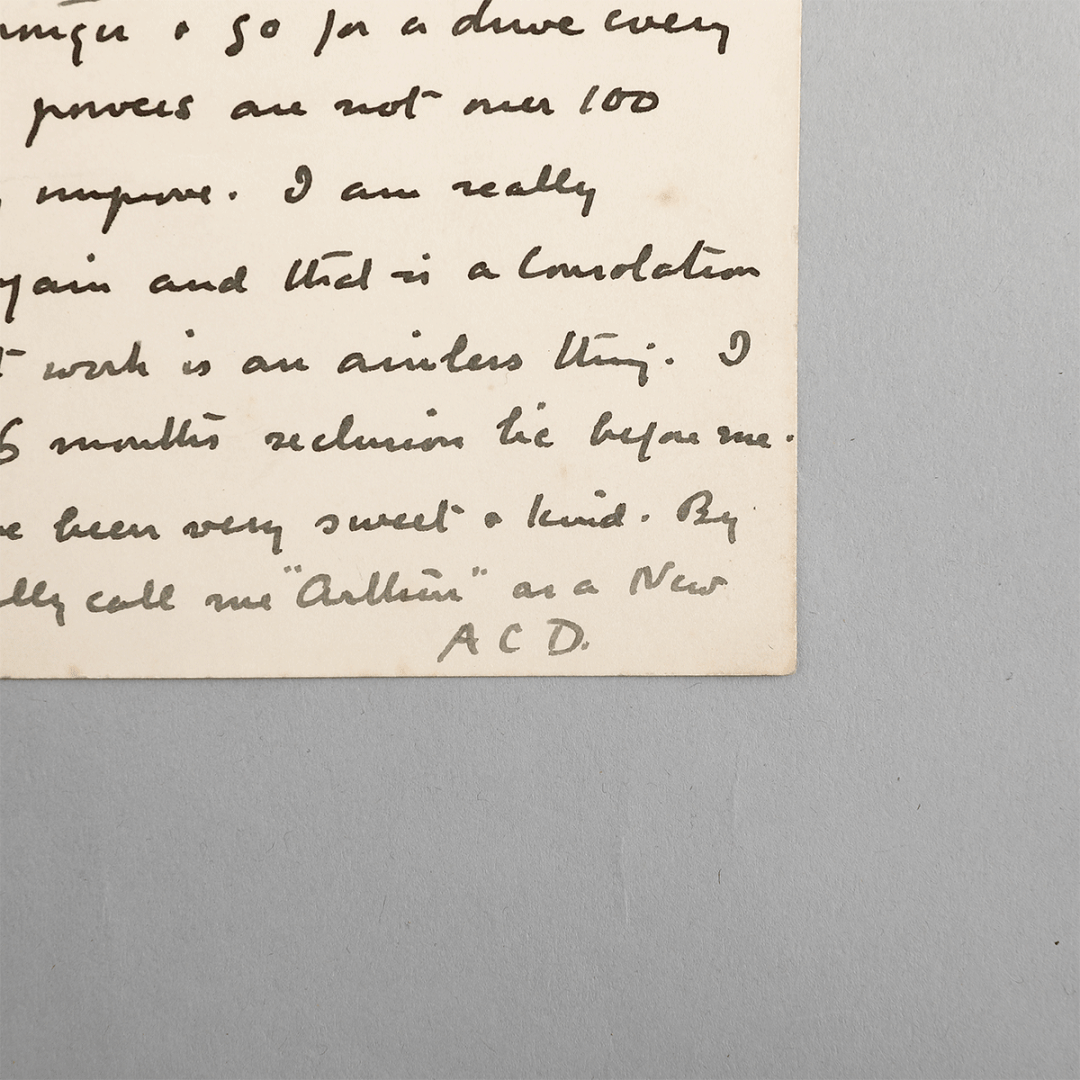 & go for a drive every
powers are not over 100
improve. I am really
again and that is a consolation
work is an aimless thing. I
6 months seclusion lie before me.
been very sweet & kind. By
call me "Arthur" as a New
A C D.